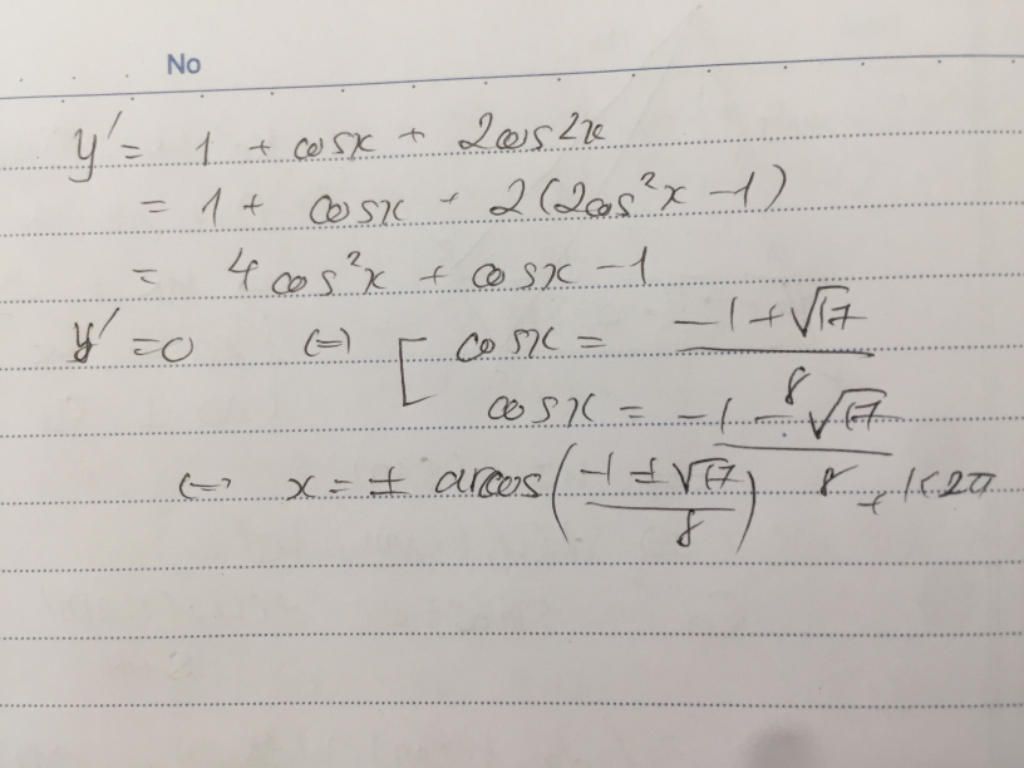 No
y' = 1 + cosx + 2cos2x
= 1 + cosx + 2(2cos²x - 1)
= 4cos²x + cosx - 1
y' = 0 (=) [ cosx = (-1 + √17)/8
cosx = (-1 - √17)/8
(=) x = ± arccos((-1 ± √17)/8) + k2π